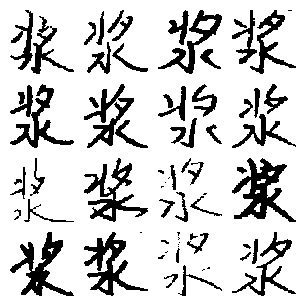 浆浆浆浆
浆浆浆浆
浆浆浆浆
浆浆浆浆